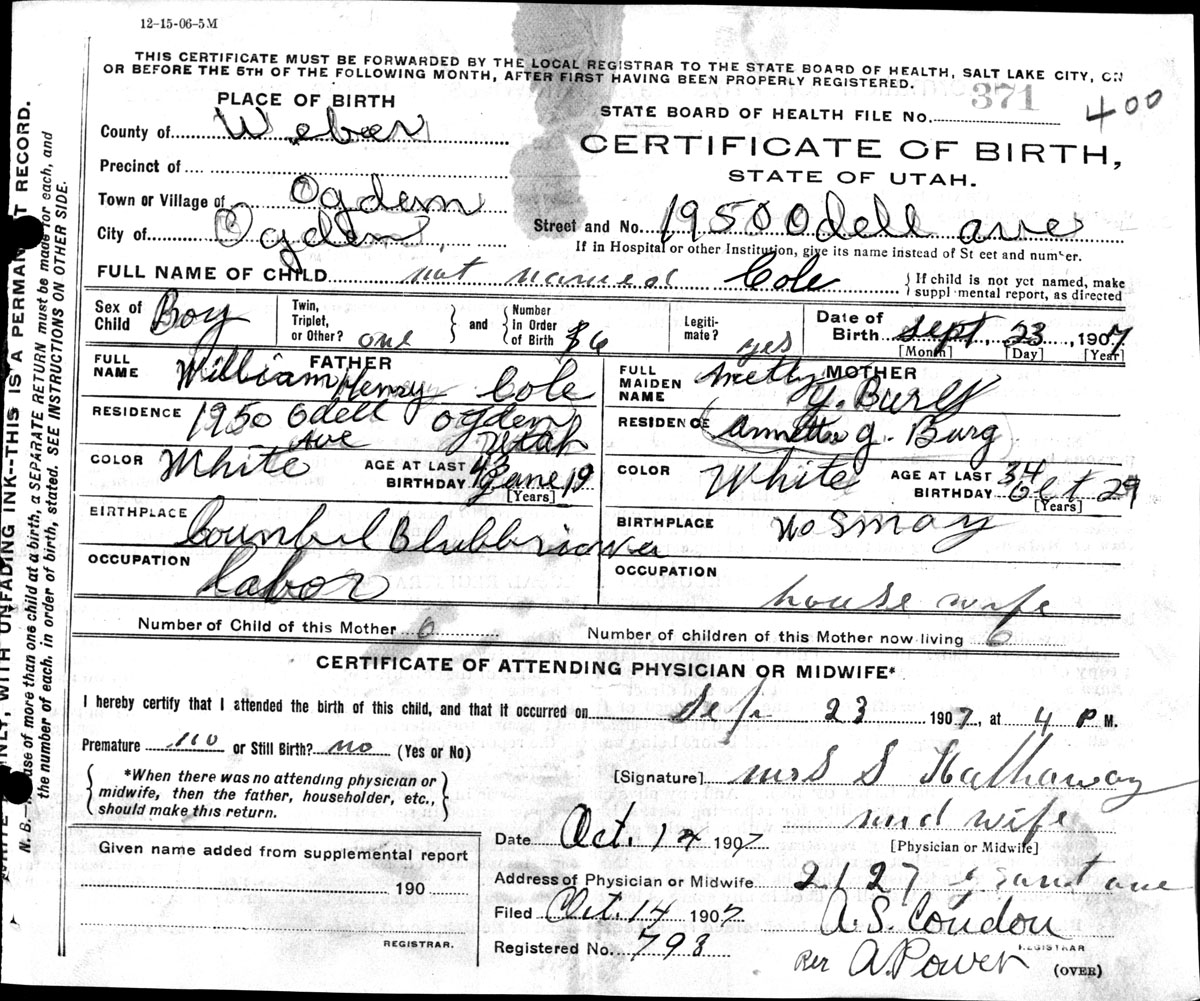 12-15-06-5M
THIS CERTIFICATE MUST BE FORWARDED BY THE LOCAL REGISTRAR TO THE STATE BOARD OF HEALTH, SALT LAKE CITY, ON
OR BEFORE THE 5TH OF THE FOLLOWING MONTH, AFTER FIRST HAVING BEEN PROPERLY REGISTERED.
371
400
PLACE OF BIRTH
STATE BOARD OF HEALTH FILE No.
County of Weber
CERTIFICATE OF BIRTH,
STATE OF UTAH.
Precinct of
Town or Village of Ogdem
City of Ogden
Street and No. 1950 Odell ave
If in Hospital or other Institution, give its name instead of St eet and number.
FULL NAME OF CHILD not named Cole
If child is not yet named, make
suppl mental report, as directed
Sex of Child Boy
Twin, Triplet, or Other? one
and
Number in Order of Birth 6
Legiti- mate? yes
Date of Birth Sept. 23, 1907
[Month] [Day] [Year]
FATHER
FULL NAME William Henry Cole
RESIDENCE 1950 Odell Ave Ogden Utah
COLOR White
AGE AT LAST BIRTHDAY June 19
[Years]
BIRTHPLACE
OCCUPATION Labor
MOTHER
FULL MAIDEN NAME
RESIDENCE Annettie g. Burg
COLOR White
AGE AT LAST BIRTHDAY 34 Oct 29
[Years]
BIRTHPLACE
OCCUPATION house wife
Number of Child of this Mother 6
Number of children of this Mother now living 6
CERTIFICATE OF ATTENDING PHYSICIAN OR MIDWIFE*
I hereby certify that I attended the birth of this child, and that it occurred on Sep 23 1907, at 4 P M.
Premature no or Still Birth? no (Yes or No)
*When there was no attending physician or
midwife, then the father, householder, etc.,
should make this return.
[Signature] Mrs S Hathaway
mid wife
[Physician or Midwife]
Date Oct. 14 1907
Address of Physician or Midwife 2127 ave
Filed Oct. 14 1907
A. S. Condon
REGISTRAR
Registered No. 793
Per A. Power
(OVER)
Given name added from supplemental report
190
REGISTRAR.
N. B.— of more than one child at a birth, a SEPARATE RETURN must be made for each, and
the number of each, in order of birth, stated. SEE INSTRUCTIONS ON OTHER SIDE.
WITH UNFADING INK--THIS IS A PERMANENT RECORD.